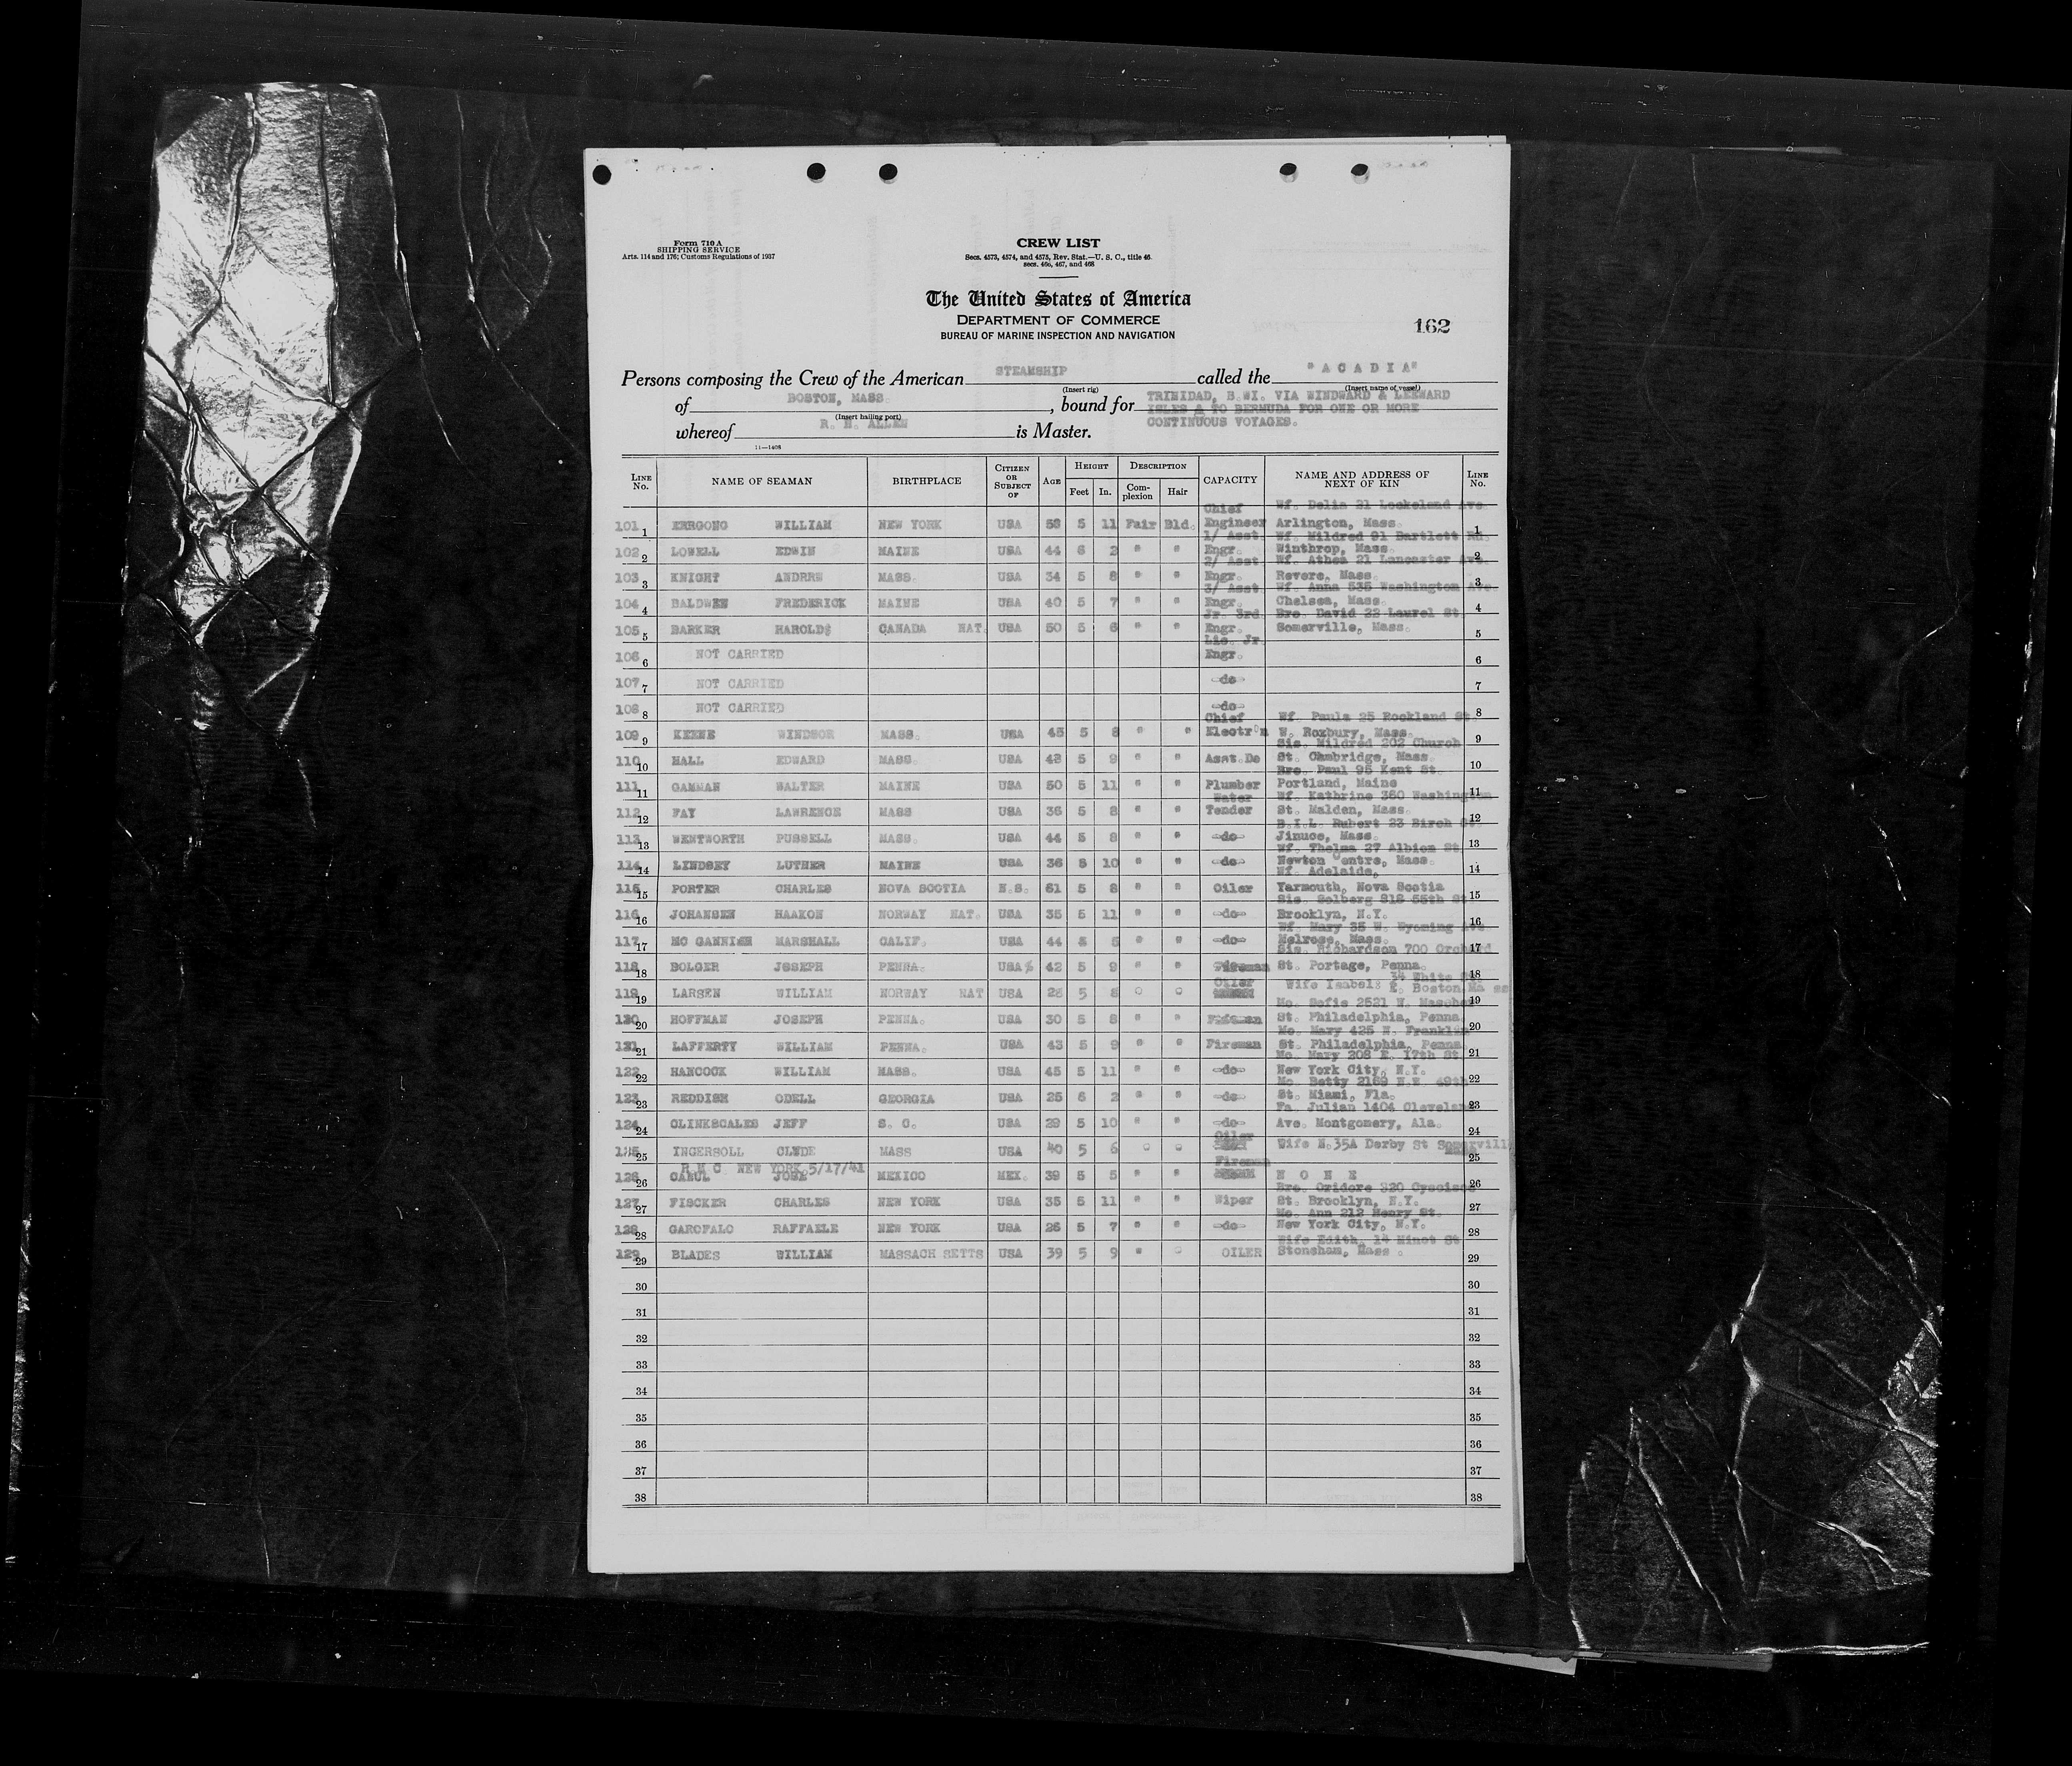 Form 710 A
SHIPPING SERVICE
Arts. 114 and 176; Customs Regulations of 1937
CREW LIST
Secs. 4573, 4574, and 4575, Rev. Stat.—U. S. C., title 46
secs. 466, 467, and 468
The United States of America
DEPARTMENT OF COMMERCE
BUREAU OF MARINE INSPECTION AND NAVIGATION
162
Persons composing the Crew of the American STEAMSHIP called the "ACADIA"
(Insert rig) (Insert name of vessel)
of BOSTON, MASS. , bound for TRINIDAD, B.WI. VIA WINDWARD & LEEWARD
(Insert hailing port) ISLES & TO BERMUDA FOR ONE OR MORE
whereof R. H. ALLEN is Master. CONTINUOUS VOYAGES.
11—1408
LINE No. NAME OF SEAMAN BIRTHPLACE CITIZEN OR SUBJECT OF AGE HEIGHT Feet In. DESCRIPTION Complexion Hair CAPACITY NAME AND ADDRESS OF NEXT OF KIN LINE No.
Chief Wf. Delia 21 Lockeland Ave.
101 1 WILLIAM NEW YORK USA 58 5 11 Fair Bld. Engineer Arlington, Mass. 1
1/ Asst. Wf. Mildred 91 Bartlett Rd.
102 2 LOWELL EDWIN MAINE USA 44 6 2 " " Engr. Winthrop, Mass. 2
2/ Asst. Wf. Athea 21 Lancaster Ave.
103 3 KNIGHT ANDREW MASS. USA 34 5 8 " " Engr. Revere, Mass. 3
3/ Asst. Wf. Anna 535 Washington Ave.
104 4 BALDWEN FREDERICK MAINE USA 40 5 7 " " Engr. Chelsea, Mass. 4
Jr. 3rd Bro. David 22 Laurel St.
105 5 BARKER HAROLD CANADA NAT. USA 50 5 6 " " Engr. Somerville, Mass. 5
Lic. Jr.
106 6 NOT CARRIED Engr. 6
107 7 NOT CARRIED -do- 7
108 8 NOT CARRIED -do- 8
Chief Wf. Paula 25 Rockland St.
109 9 KEENE WINDSOR MASS. USA 45 5 8 " " Electr'n W. Roxbury, Mass. 9
Sis. Mildred 202 Church
110 10 HALL EDWARD MASS. USA 42 5 9 " " Asst.Do St. Cambridge, Mass. 10
Bro. Paul 95 Kent St.
111 11 GAMMAN WALTER MAINE USA 50 5 11 " " Plumber Portland, Maine 11
Water Wf. Kathrine 360 Washington
112 12 FAY LAWRENCE MASS USA 36 5 8 " " Tender St. Malden, Mass. 12
B.I.L. Rubert 23 Birch
113 13 WENTWORTH PUSSELL MASS. USA 44 5 8 " " -do- Jinuce, Mass. 13
Wf. Thelma 27 Albion St
114 14 LINDSEY LUTHER MAINE USA 36 5 10 " " -do- Newton Centre, Mass. 14
Wf. Adelaide,
115 15 PORTER CHARLES NOVA SCOTIA N.S. 61 5 8 " " Oiler Yarmouth, Nova Scotia 15
Sis. Solberg 818 55th St
116 16 JOHANSEN HAAKON NORWAY NAT. USA 35 5 11 " " -do- Brooklyn, N.Y. 16
Wf. Mary 35 W. Wyoming Ave
117 17 MC MARSHALL CALIF. USA 44 5 5 " " -do- Melrose, Mass. 17
Sis. Richardson 700 Orchard
118 18 BOLGER JOSEPH PENNA. USA 42 5 9 " " Fireman St. Portage, Penna. 18
Oiler 34 White St
119 19 LARSEN WILLIAM NORWAY NAT USA 28 5 8 " " Wife Isabel: E. Boston Mass 19
Mo. Sofie 2521 N. Mascher
120 20 HOFFMAN JOSEPH PENNA. USA 30 5 8 " " Fireman St. Philadelphia, Penna. 20
Mo. Mary 425 N. Franklin
121 21 LAFFERTY WILLIAM PENNA. USA 43 5 9 " " Fireman St. Philadelphia, Penna 21
Mo. Mary 208 E. 17th St.
122 22 HANCOCK WILLIAM MASS. USA 45 5 11 " " -do- New York City, N.Y. 22
Mo. Betty 2169 N.W. 49th
123 23 REDDISH ODELL GEORGIA USA 25 6 2 " " -do- St. Miami, Fla. 23
Fa. Julian 1404 Cleveland
124 24 CLINKSCALES JEFF S. C. USA 29 5 10 " " -do- Ave. Montgomery, Ala. 24
Oiler
125 25 INGERSOLL CLYDE MASS USA 40 5 6 " " Wife N.35A Derby St Somerville Mass 25
R M C NEW YORK 5/17/41 Fireman
126 26 JOSE MEXICO MEX. 39 5 5 " " N O N E 26
Bro. Oridore 320
127 27 FISCKER CHARLES NEW YORK USA 35 5 11 " " Wiper St. Brooklyn, N.Y. 27
Mo. Ann 212 Henry St.
128 28 GAROFALO RAFFAELE NEW YORK USA 26 5 7 " " -do- New York City, N.Y. 28
Wife Edith, 14 Minot St
129 29 BLADES WILLIAM MASSACH SETTS USA 39 5 9 " " OILER Stoneham, Mass. 29
30 30
31 31
32 32
33 33
34 34
35 35
36 36
37 37
38 38